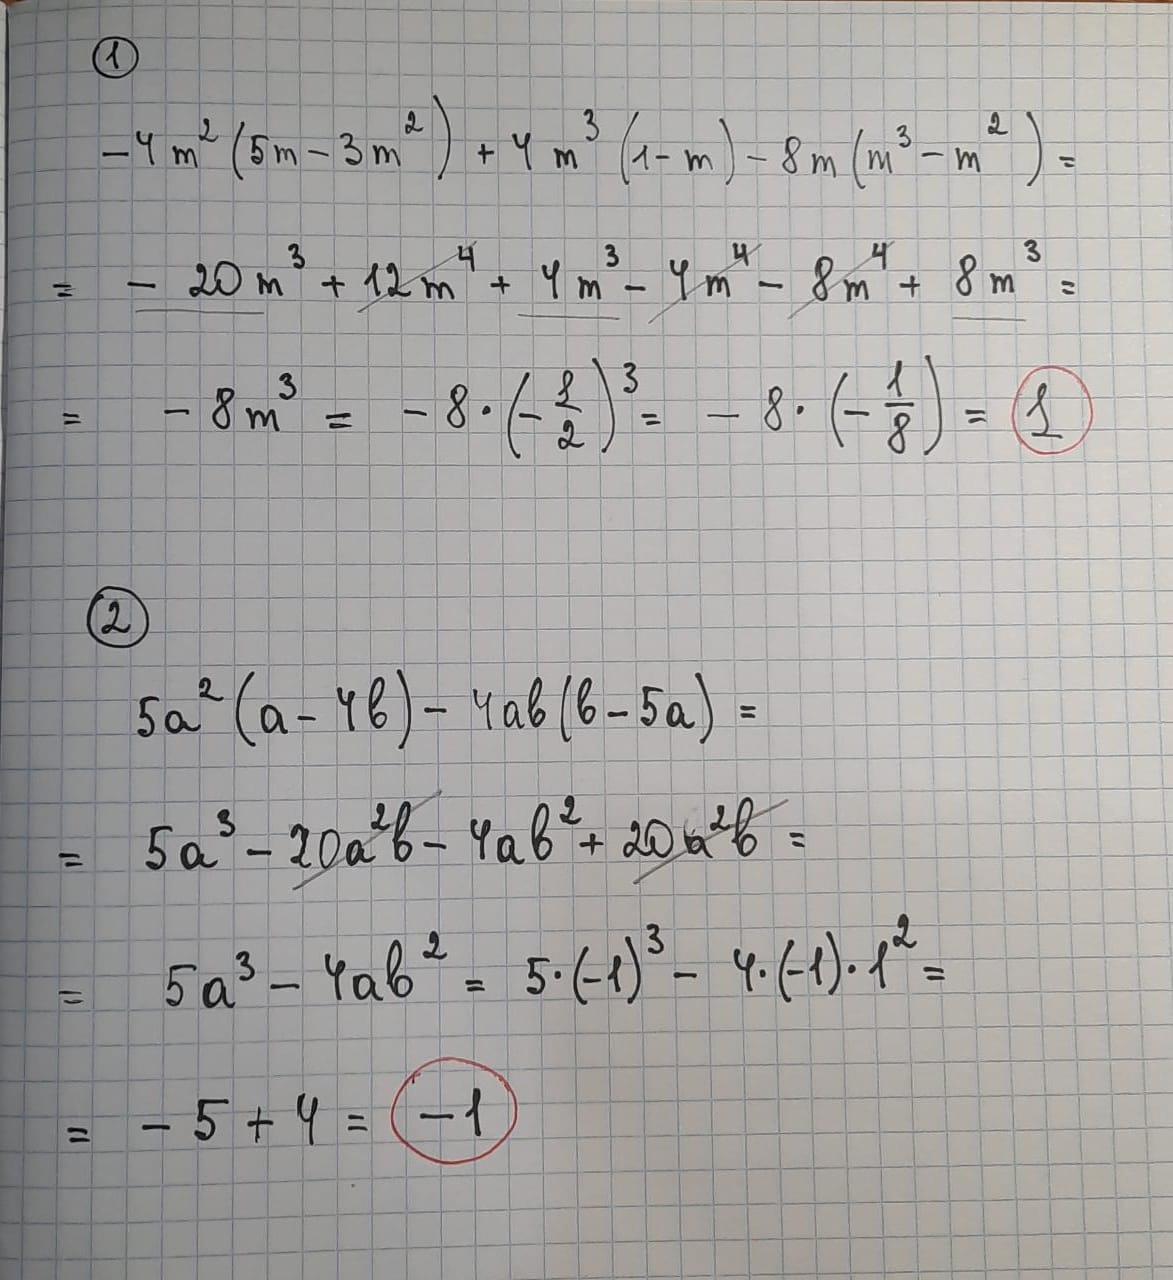 ①
-4m²(5m-3m²)+4m³(1-m)-8m(m³-m²)=
= -20m³+12m⁴+4m³-4m⁴-8m⁴+8m³=
= -8m³= -8·(-1/2)³= -8·(-1/8)= 1
②
5a²(a-4b)-4ab(b-5a)=
= 5a³-20a²b-4ab²+20a²b=
= 5a³-4ab²= 5·(-1)³-4·(-1)·1²=
= -5+4= -1